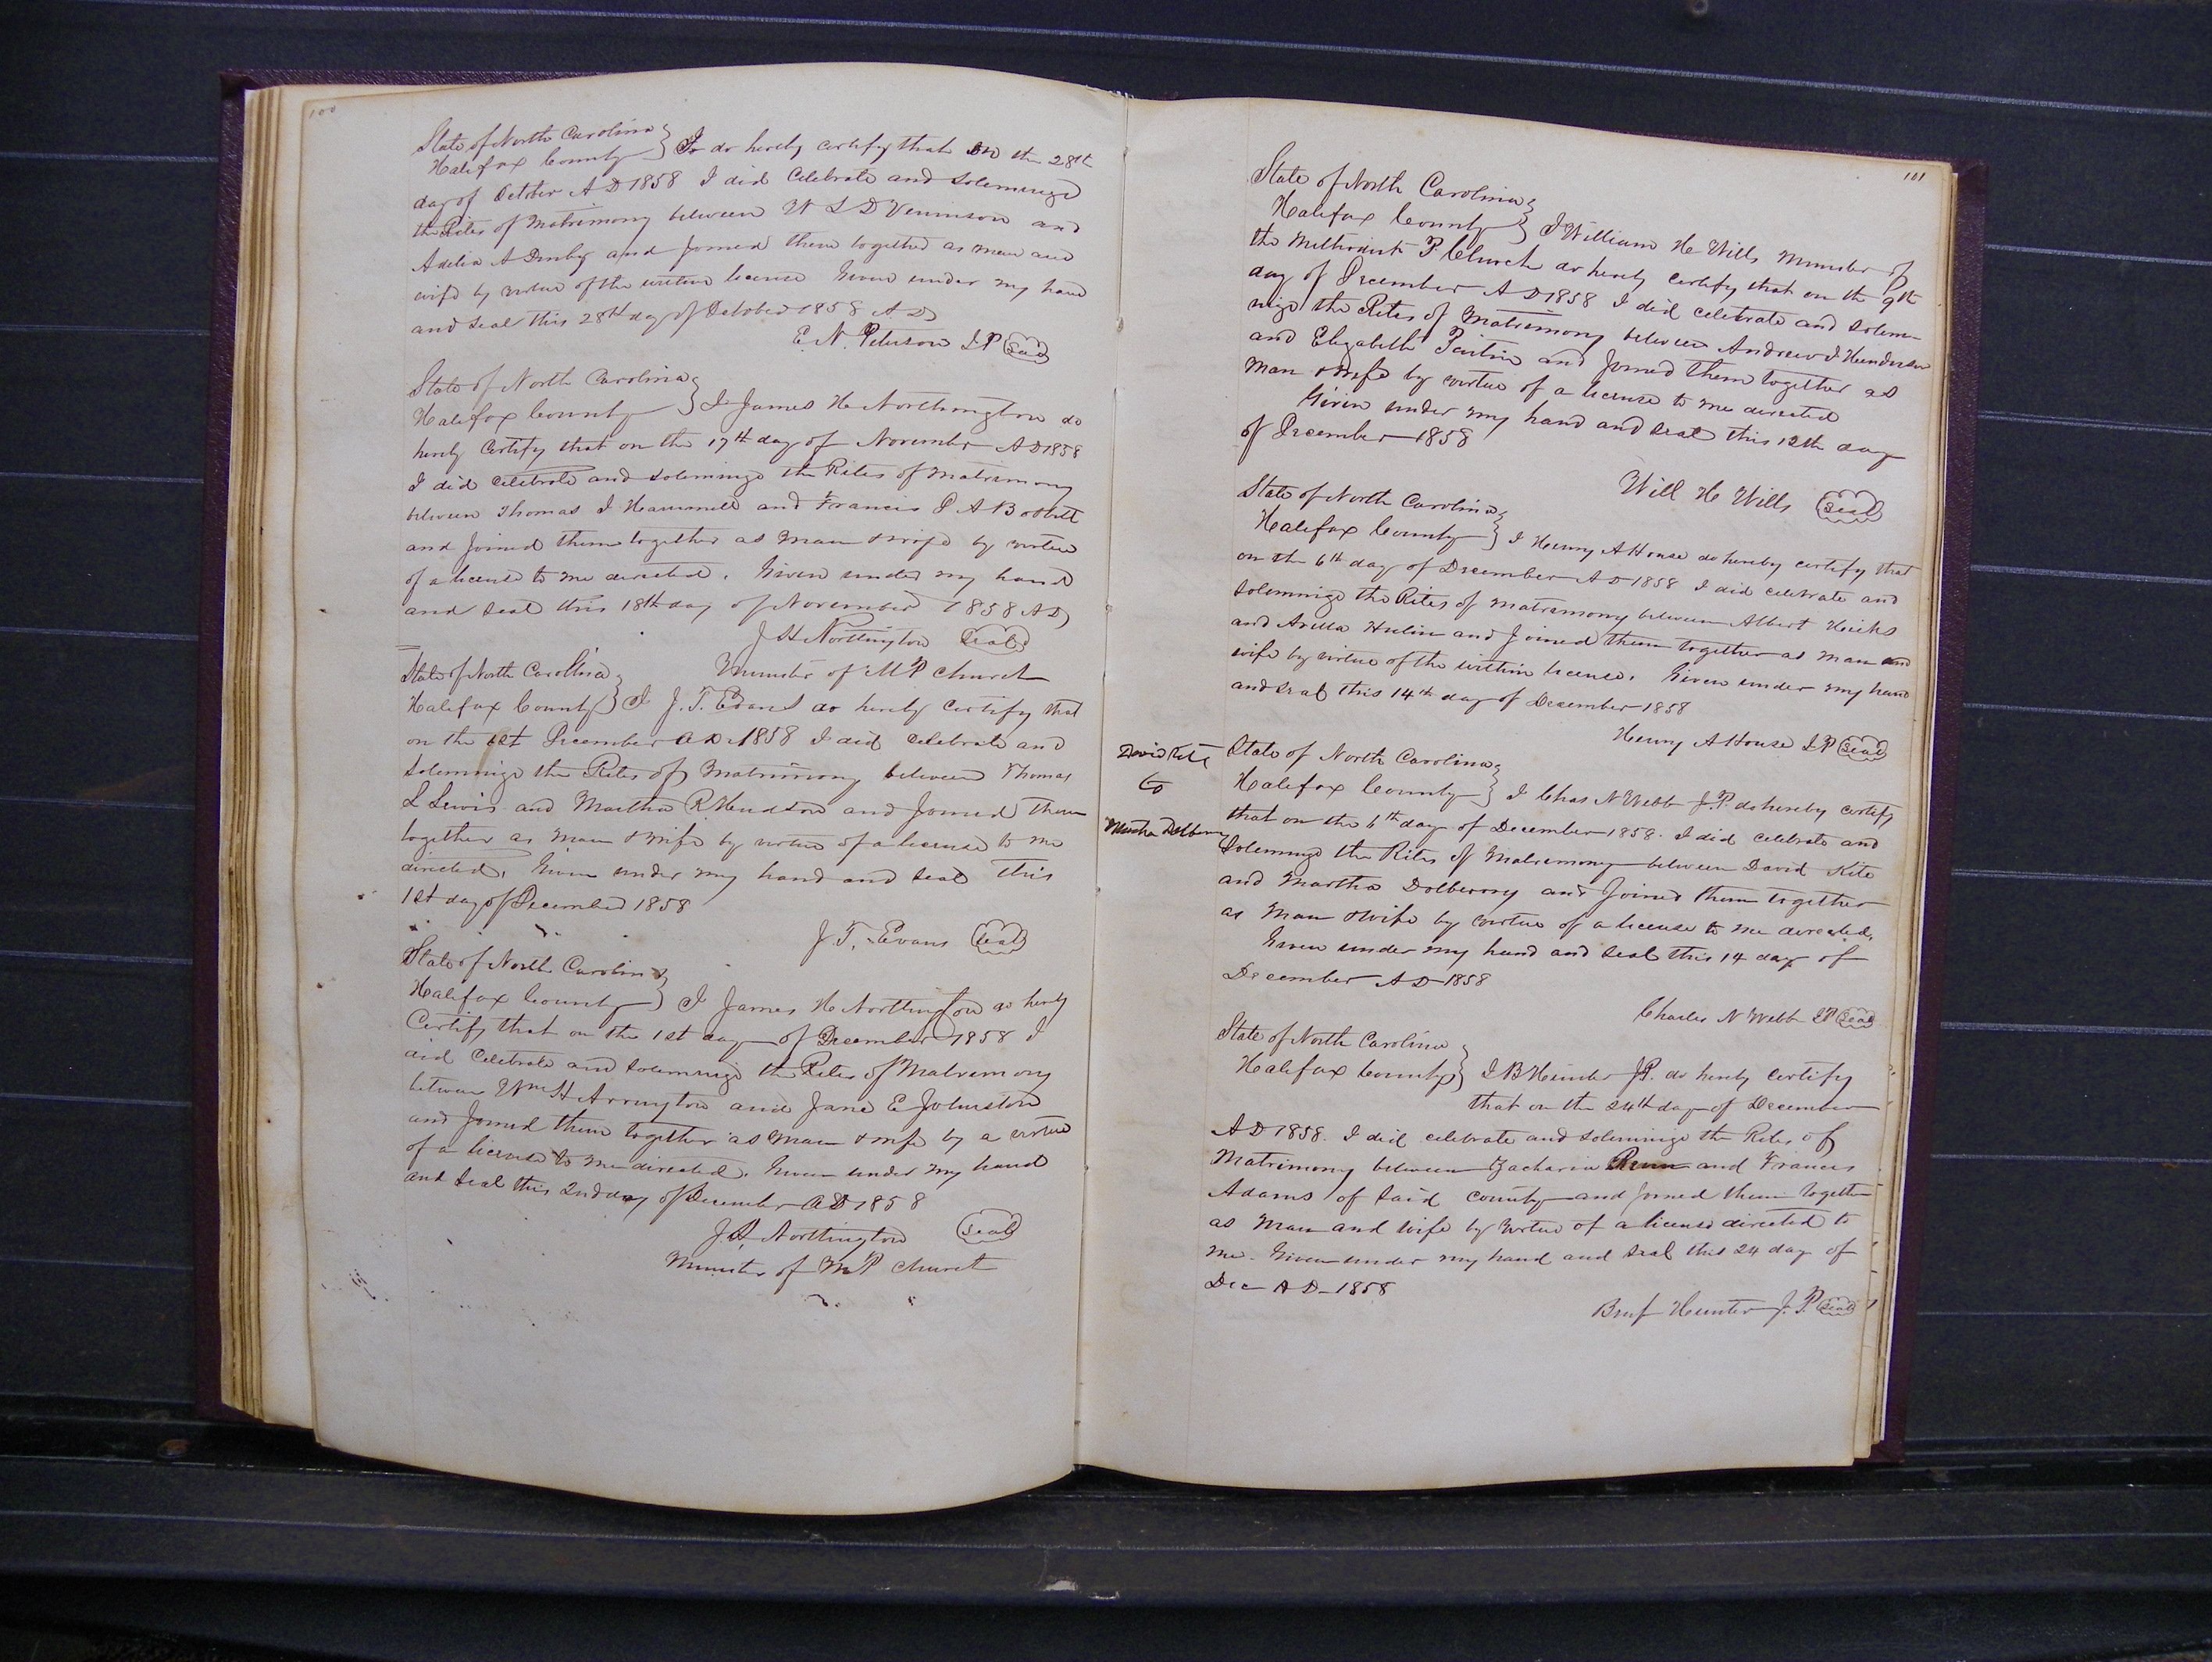 100
State of North Carolina }
Halifax County } I do hereby certify that on the 28th
day of October AD 1858 I did Celebrate and Solemnize
the Rites of Matrimony between W L D Vennison and
Adelia A and Joined them together as man and
wife by virtue of the within license Given under my hand
and seal this 28th day of October 1858 AD
E. N. Peterson J.P. Seal
State of North Carolina }
Halifax County } I James H Northington do
hereby Certify that on the 17th day of November AD 1858
I did Celebrate and Solemnize the Rites of Matrimony
between Thomas J and Francis P A Bobbitt
and Joined them together as Man & wife by virtue
of a license to me directed. Given under my hand
and seal this 18th day of November 1858 AD
J H Northington Seal
Minister of M P Church
State of North Carolina }
Halifax County } I J. T. Evans do hereby Certify that
on the 1st December AD 1858 I did Celebrate and
Solemnize the Rites of Matrimony between Thomas
L Lewis and Martha R Hudson and Joined them
together as man & wife by virtue of a license to me
directed. Given under my hand and seal this
1st day of December 1858
J. T. Evans Seal
State of North Carolina }
Halifax County } I James H Northington do hereby
Certify that on the 1st day of December 1858 I
did Celebrate and Solemnize the Rites of Matrimony
between Wm H Arrington and Jane E Johnston
and Joined them together as Man & wife by a virtue
of a license to me directed. Given under my hand
and Seal this 2nd day of December AD 1858
J. H. Northington Seal
Minister of M P Church
101
State of North Carolina }
Halifax County } I William H Wills Minister of
the Methodist P. Church do hereby certify that on the 9th
day of December AD 1858 I did celebrate and Solem-
nize the Rites of Matrimony between Andrew J Henderson
and Elizabeth Partin and Joined them together as
Man & wife by virtue of a license to me directed
Given under my hand and seal this 12th day
of December 1858
Will H Wills Seal
State of North Carolina }
Halifax County } I Henry A House do hereby certify that
on the 6th day of December AD 1858 I did celebrate and
Solemnize the Rites of Matrimony between Albert Hicks
and Arilla Hulin and Joined them together as man and
wife by virtue of the within license. Given under my hand
and seal this 14th day of December 1858
Henry A House J.P. Seal
David Kite
to
Martha Dolberry
State of North Carolina }
Halifax County } I Chas N Webb J.P. do hereby certify
that on the 6th day of December 1858. I did celebrate and
Solemnize the Rites of Matrimony between David Kite
and Martha Dolberry and Joined them together
as Man & wife by virtue of a license to me directed.
Given under my hand and seal this 14 day of
December AD 1858
Charles N Webb J.P. Seal
State of North Carolina }
Halifax County } I B Hunter J.P. do hereby certify
that on the 24th day of December
AD 1858. I did celebrate and solemnize the Rites of
Matrimony between Zacharia and Frances
Adams of said County and joined them together
as Man and wife by virtue of a license directed to
me. Given under my hand and seal this 24 day of
Dec AD 1858
Hunter J.P. Seal